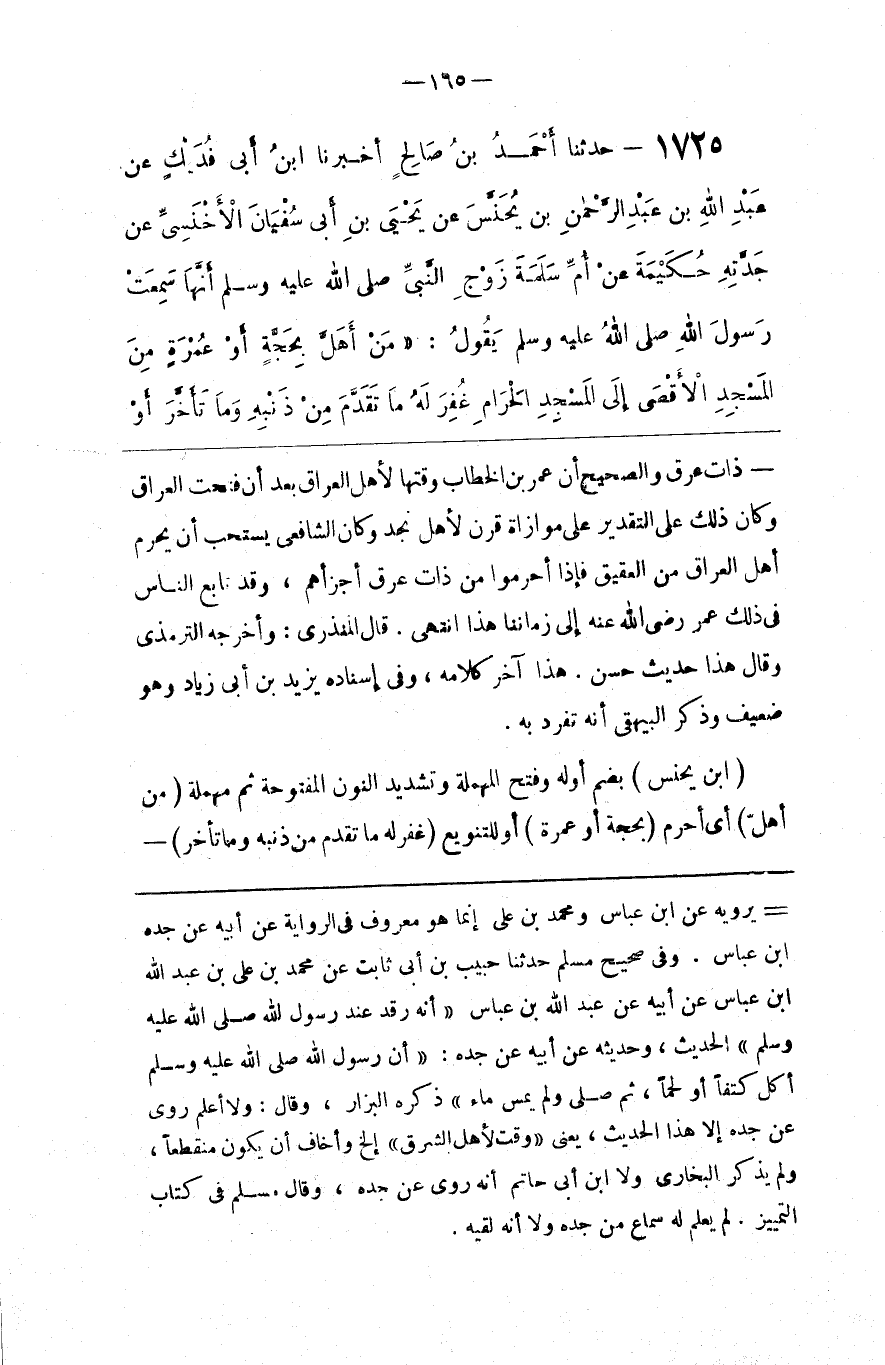 — ١٦٥ —
١٧٢٥ — حدثنا أَحْمَدُ بنُ صَالِحٍ أخبرنا ابنُ أَبى فُدَيْكٍ عن
عَبْدِ اللهِ بن عَبْدِالرَّحْمٰنِ بن يُحَنَّسَ عن يَحْيَى بنِ أَبى سُفْيَانَ الْأَخْنَسِىِّ عن
جَدَّتِهِ حُكَيْمَةَ عنْ أُمِّ سَلَمَةَ زَوْجِ النَّبىِّ صلى الله عليه وسلم أَنَّهَا سَمِعَتْ
رَسولَ اللهِ صلى اللهُ عليه وسلم يَقُولُ : « مَنْ أَهَلَّ بِحَجَّةٍ أَوْ عُمْرَةٍ مِنَ
المَسْجِدِ الْأَقْصَى إِلَى المَسْجِدِ الحَرَامِ غُفِرَ لَهُ ماَ تَقَدَّمَ مِنْ ذَنْبِهِ وَماَ تَأَخَّرَ أَوْ
— ذات عرق والصحيح أن عمر بن الخطاب وقتها لأهل العراق بعد أن فتحت العراق
وكان ذلك على التقدير على موازاة قرن لأهل نجد وكان الشافعى يستحب أن يحرم
أهل العراق من العقيق فإذا أحرموا من ذات عرق أجزأهم ، وقد تابع الناس
فى ذلك عمر رضى الله عنه إلى زماننا هذا انتهى . قال المنذرى : وأخرجه الترمذى
وقال هذا حديث حسن . هذا آخر كلامه ، وفى إسناده يزيد بن أبى زياد وهو
ضعيف وذكر البيهقى أنه تفرد به .
( ابن يحنس ) بضم أوله وفتح المهملة وتشديد النون المفتوحة ثم مهملة ( من
أهلّ ) أى أحرم ( بحجة أو عمرة ) أو للتنويع ( غفر له ما تقدم من ذنبه وما تأخر ) —
= يرويه عن ابن عباس ومحمد بن على إنما هو معروف فى الرواية عن أبيه عن جده
ابن عباس . وفى صحيح مسلم حدثنا حبيب بن أبى ثابت عن محمد بن على بن عبد الله
ابن عباس عن أبيه عن عبد الله بن عباس « أنه رقد عند رسول لله صلى الله عليه
وسلم » الحديث ، وحديثه عن أبيه عن جده : « أن رسول الله صلى الله عليه وسلم
أكل كتفاً أو لحماً ، ثم صلى ولم يمس ماء » ذكره البزار ، وقال : ولا أعلم روى
عن جده إلا هذا الحديث ، يعنى « وقت لأهل الشرق » إلخ وأخاف أن يكون منقطعاً ،
ولم يذكر البخارى ولا ابن أبى حاتم أنه روى عن جده ، وقال مسلم فى كتاب
التمييز . لم يعلم له سماع من جده ولا أنه لقيه .